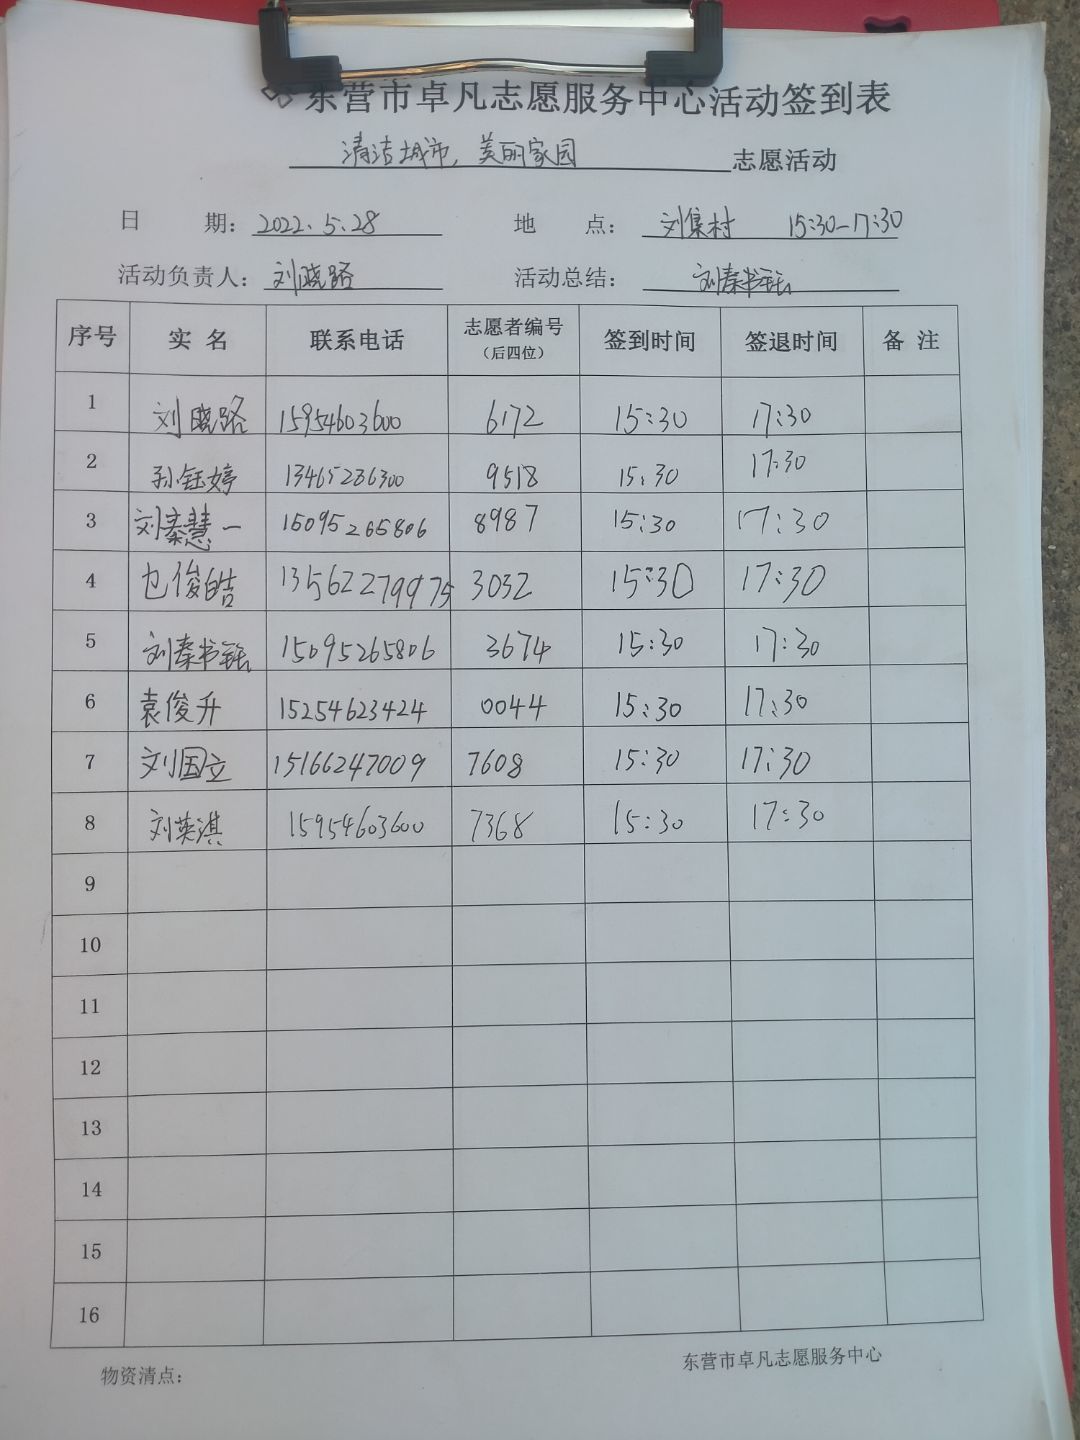 东营市卓凡志愿服务中心活动签到表
清洁城市，美丽家园 志愿活动
日 期：2022.5.28 地 点：刘集村 15:30-17:30
活动负责人：刘晓路 活动总结：刘秦书
序号 实名 联系电话 志愿者编号（后四位） 签到时间 签退时间 备注
1 刘晓路 15954603600 6172 15:30 17:30
2 孙钰婷 13465236300 9518 15:30 17:30
3 刘秦慧一 15095265806 8987 15:30 17:30
4 俊皓 13562279975 3032 15:30 17:30
5 刘秦书 15095265806 3674 15:30 17:30
6 袁俊升 15254623424 0044 15:30 17:30
7 刘国立 15166247009 7608 15:30 17:30
8 刘英淇 15954603600 7368 15:30 17:30
9
10
11
12
13
14
15
16
物资清点： 东营市卓凡志愿服务中心